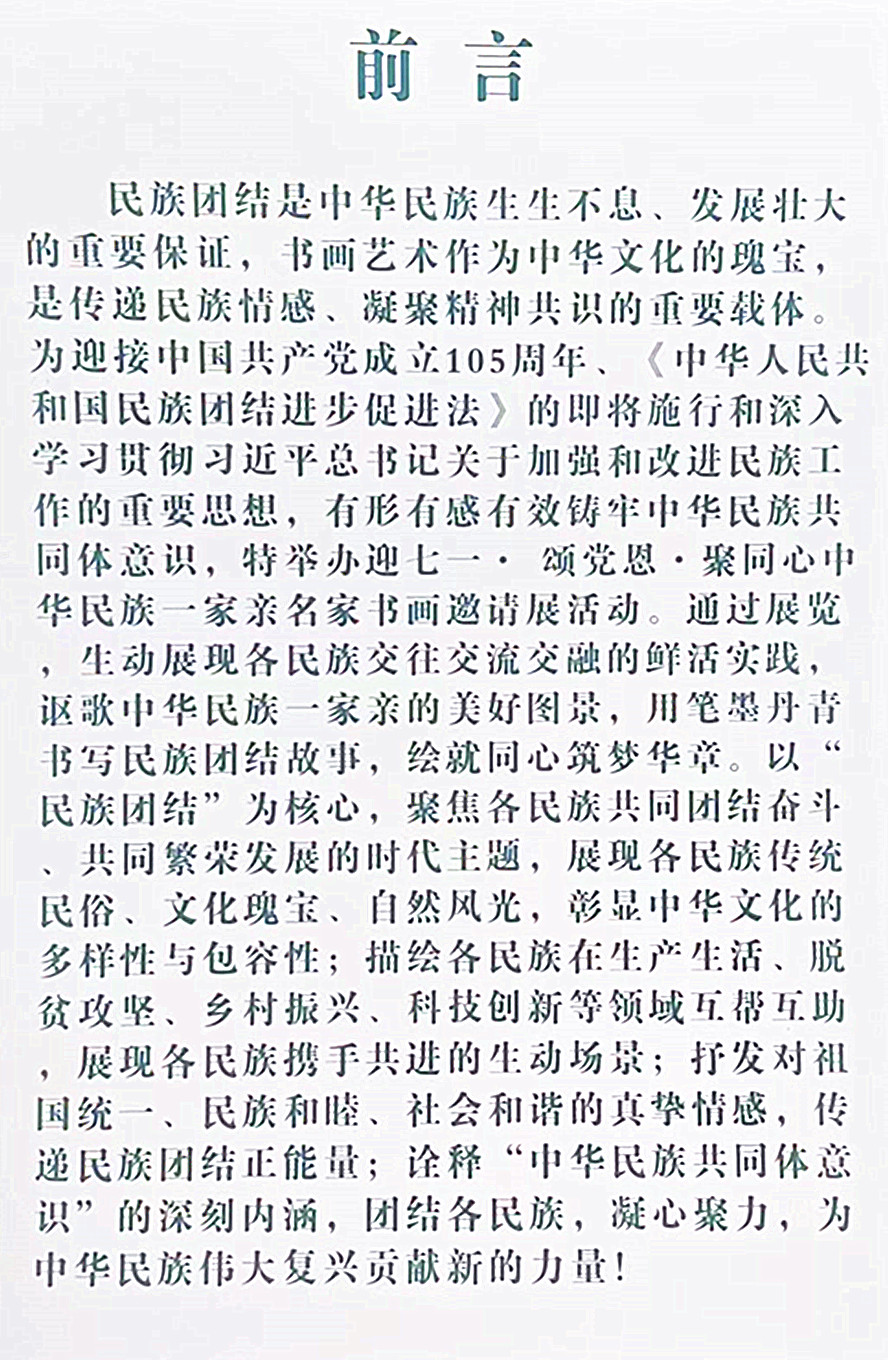 前言
民族团结是中华民族生生不息、发展壮大
的重要保证，书画艺术作为中华文化的瑰宝，
是传递民族情感、凝聚精神共识的重要载体。
为迎接中国共产党成立105周年、《中华人民共
和国民族团结进步促进法》的即将施行和深入
学习贯彻习近平总书记关于加强和改进民族工
作的重要思想，有形有感有效铸牢中华民族共
同体意识，特举办迎七一· 颂党恩·聚同心中
华民族一家亲名家书画邀请展活动。通过展览
，生动展现各民族交往交流交融的鲜活实践，
讴歌中华民族一家亲的美好图景，用笔墨丹青
书写民族团结故事，绘就同心筑梦华章。以“
民族团结”为核心，聚焦各民族共同团结奋斗
、共同繁荣发展的时代主题，展现各民族传统
民俗、文化瑰宝、自然风光，彰显中华文化的
多样性与包容性；描绘各民族在生产生活、脱
贫攻坚、乡村振兴、科技创新等领域互帮互助
，展现各民族携手共进的生动场景；抒发对祖
国统一、民族和睦、社会和谐的真挚情感，传
递民族团结正能量；诠释“中华民族共同体意
识”的深刻内涵，团结各民族，凝心聚力，为
中华民族伟大复兴贡献新的力量！